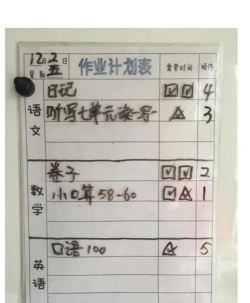 12月2日 作业计划表 需要时间 顺序
星期五
语文
日记 4
听写七单元读一写一 3
数学
卷子 2
小口算58-60 1
英语
口语100 5